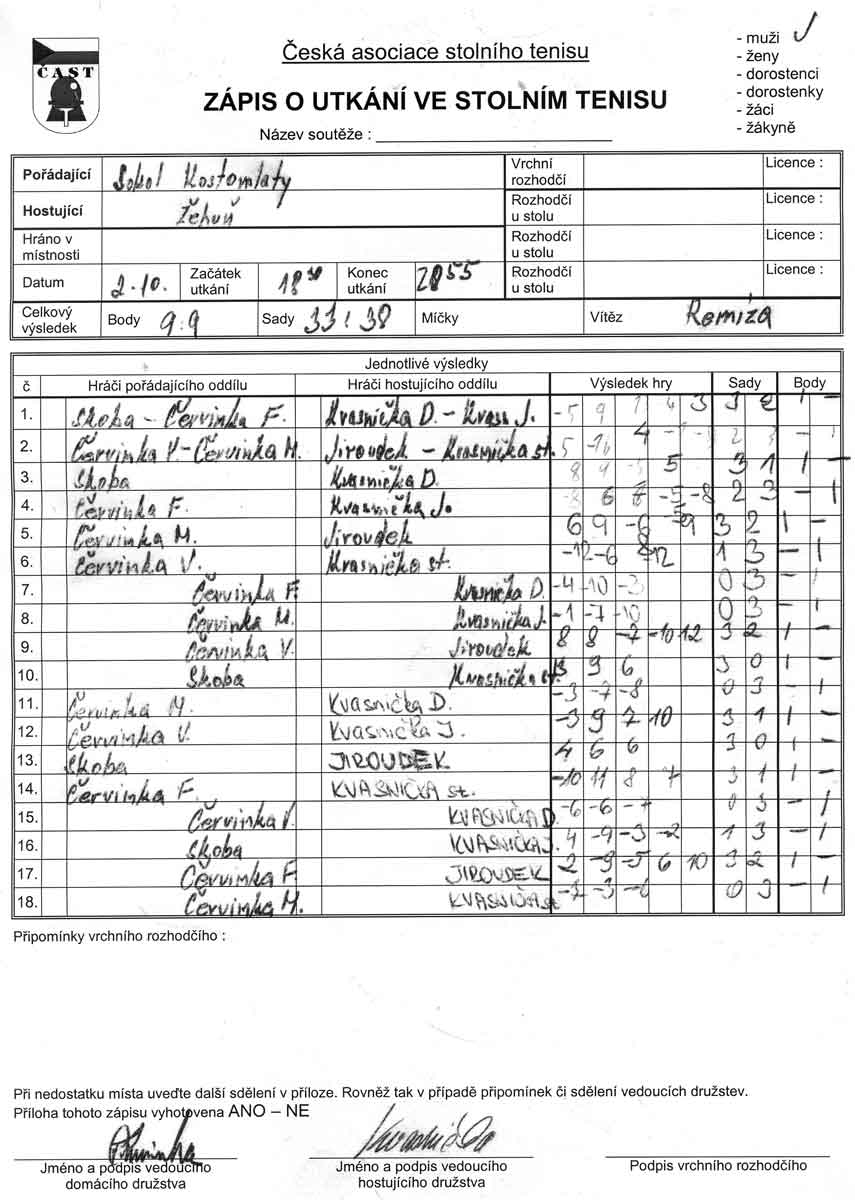 - muži ✓
- ženy
- dorostenci
- dorostenky
- žáci
- žákyně
ČAST
Česká asociace stolního tenisu
ZÁPIS O UTKÁNÍ VE STOLNÍM TENISU
Název soutěže :
Pořádající Sokol Kostomlaty Vrchní rozhodčí Licence :
Hostující Žehuň Rozhodčí u stolu Licence :
Hráno v místnosti Rozhodčí u stolu Licence :
Datum 2.10. Začátek utkání 18 30 Konec utkání Rozhodčí u stolu Licence :
Celkový výsledek Body 9:9 Sady 33:38 Míčky Vítěz Remíza
Jednotlivé výsledky
č Hráči pořádajícího oddílu Hráči hostujícího oddílu Výsledek hry Sady Body
1. Skoba - Červinka F. Kvasnička D. - Kvasn J. -5 9 4 3 3 2 1 -
2. Červinka V. - Červinka M. Jiroudek - Kvasnička st. 5 2 3 - 1
3. Skoba Kvasnička D. 8 9 5 3 1 1 -
4. Červinka F. Kvasnička J. -8 6 -5 -8 2 3 - 1
5. Červinka M. Jiroudek 6 9 -6 3 2 1 -
6. Červinka V. Kvasnička st. -12 -6 1 3 - 1
7. Červinka F. Kvasnička D. -4 -10 -3 0 3 - 1
8. Červinka M. Kvasnička J. -1 -7 -10 0 3 - 1
9. Červinka V. Jiroudek 8 8 -7 -10 12 3 2 1 -
10. Skoba Kvasnička st. 9 6 3 0 1 -
11. Červinka M. Kvasnička D. -3 -7 -8 0 3 - 1
12. Červinka V. Kvasnička J. -3 9 7 10 3 1 1 -
13. Skoba JIROUDEK 4 6 6 3 0 1 -
14. Červinka F. KVASNIČKA st. -10 11 8 7 3 1 1 -
15. Červinka V. KVASNIČKA D. -6 -6 -7 0 3 - 1
16. Skoba KVASNIČKA J. 4 -9 -3 -2 1 3 - 1
17. Červinka F. JIROUDEK 2 -9 -5 6 10 3 2 1 -
18. Červinka M. KVASNIČKA st -7 -3 0 3 - 1
Připomínky vrchního rozhodčího :
Při nedostatku místa uveďte další sdělení v příloze. Rovněž tak v případě připomínek či sdělení vedoucích družstev.
Příloha tohoto zápisu vyhotovena ANO – NE
Jméno a podpis vedoucího domácího družstva
Jméno a podpis vedoucího hostujícího družstva
Podpis vrchního rozhodčího